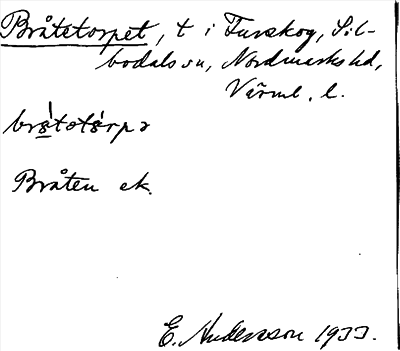 Bråtetorpet, t i Furskog, Sil-
bodals sn, Nordmarks hd,
Värml. l.
bråtetå̀rpə
Bråten ek.
E. Andersson 1933.